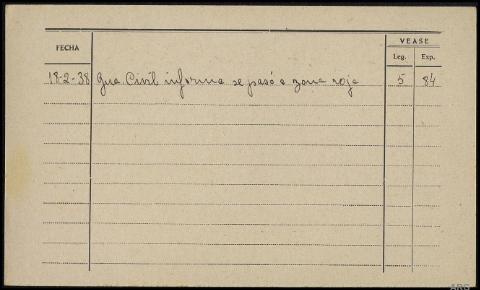 FECHA
VEASE
Leg. Exp.
18-2-38 Gua Civil informa se pasó a zona roja 5 84
ARS